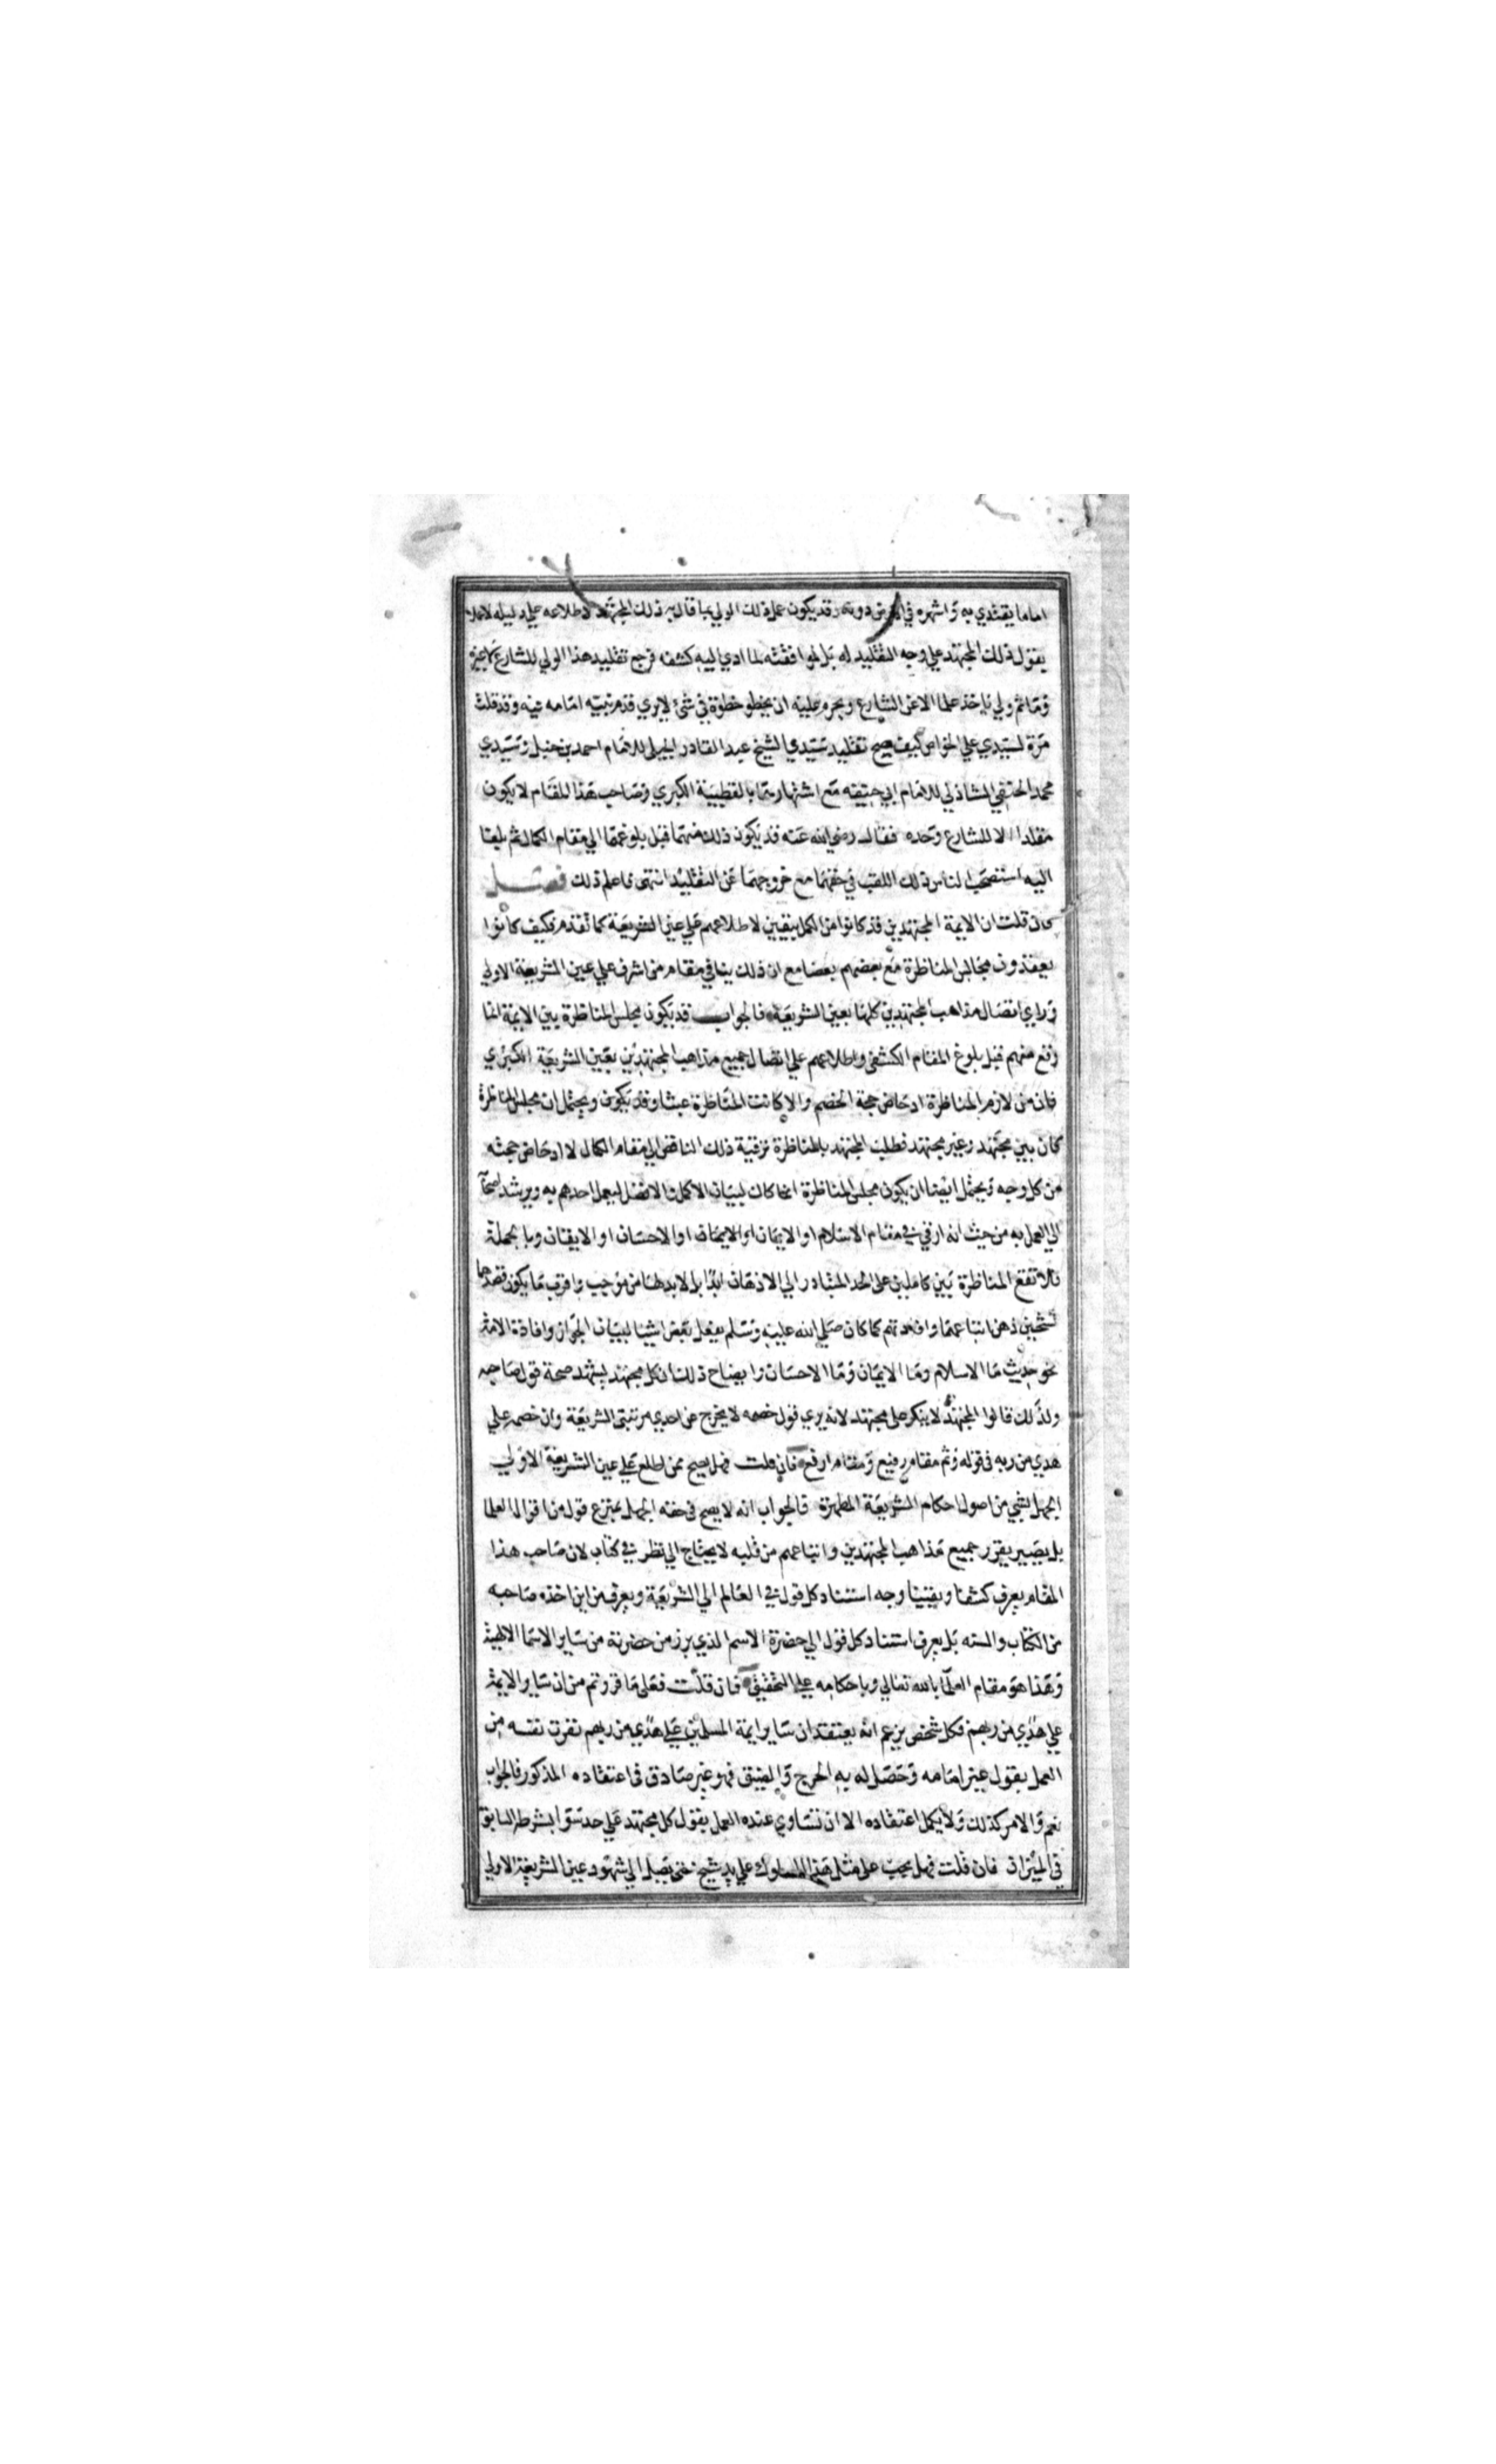 اماما يقتدي به واشهره في الارض دونه وقد يكون عمل ذلك الولي بما قال به ذلك المجتهد لاطلاعه علي دليله لا عملا
بقول ذلك المجتهد علي وجه التقليد له بل لموافقته لما ادي اليه كشفه فرجع تقليد هذا الولي للشارع لا غيره
وما ثم ولي ياخذ علما الا عن الشارع ويحرم عليه ان يخطو خطوة في شئ لا يري قدم نبيه امامه فيه وقد قلت
مرة لسيدي علي الخواص كيف صح تقليد سيدي الشيخ عبد القادر الجيلي للامام احمد بن حنبل وسيدي
محمد الحنفي الشاذلي للامام ابي حنيفه مع اشتهارهما بالقطبية الكبري وصاحب هذا المقام لا يكون
مقلدا الا للشارع وحده فقال رضي الله عنه قد يكون ذلك منهما قبل بلوغهما الي مقام الكمال ثم لما بلغا
اليه استصحب الناس ذلك اللقب في حقهما مع خروجهما عن التقليد انتهي فاعلم ذلك فصل
فان قلت ان الايمة المجتهدين قد كانوا من الكمل بيقين لاطلاعهم علي عين الشريعة كما تقدم فكيف كانوا
يعقدون مجالس المناظرة مع بعضهم بعضا مع ان ذلك ينافي مقام من اشرف علي عين الشريعة الاولي
وراي اتصال مذاهب المجتهدين كلها بعين الشريعة فالجواب قد يكون مجلس المناظرة بين الايمة انما
وقع منهم قبل بلوغ المقام الكشفي واطلاعهم علي اتصال جميع مذاهب المجتهدين بعين الشريعة الكبري
فان من لازم المناظرة ادحاض حجة الخصم والا كانت المناظرة عبثا وقد يكون ويحتمل ان مجلس المناظرة
كان بين مجتهد وغير مجتهد فطلب المجتهد بالمناظرة ترقية ذلك الناقص الي مقام الكمال لا ادحاض حجته
من كل وجه ويحتمل ايضا ان يكون مجلس المناظرة انما كان لبيان الاكمل والافضل ليعمل احدهم به ويرشد اصحابه
الي العمل به من حيث انه ارقي في مقام الاسلام او الايمان او الايمان او الاحسان او الايقان وبالجملة
فلا تقع المناظرة بين كاملين علي الحد المتبادر الي الاذهان ابدا بل لا بد لها من موجب واقرب ما يكون قصدهما
تشحين ذهن اتباعهما وافادتهم كما كان صلي الله عليه وسلم يفعل بعض اشيا لبيان الجواز وافادة الامة
نحو حديث ما الاسلام وما الايمان وما الاحسان وايضاح ذلك ان كل مجتهد يشهد صحة قول صاحبه
ولذلك قالوا المجتهد لا ينكر علي مجتهد لانه يري قول خصمه لا يخرج عن احدي مرتبتي الشريعة وان خصمه علي
هدي من ربه في قوله وثم مقام رفيع ومقام ارفع فان قلت فهل يصح ممن اطلع علي عين الشريعة الاولي
الجهل بشي من اصول احكام الشريعة المطهرة فالجواب انه لا يصح في حقه الجهل بمنزع قول من اقوال العلما
بل يصير يقرر جميع مذاهب المجتهدين واتباعهم من قلبه لا يحتاج الي نظر في كتاب لان صاحب هذا
المقام يعرف كشفا ويقينا وجه استناد كل قول في العالم الي الشريعة ويعرف من اين اخذه صاحبه
من الكتاب والسنه بل يعرف استناد كل قول الي حضرة الاسم الذي برز من حضرته من ساير الاسما الالهية
وهذا هو مقام العلما بالله تعالي وباحكامه علي التحقيق فان قلت فعلي ما قررتم من ان ساير الايمة
علي هدي من ربهم فكل شخص يزعم انه يعتقد ان ساير ايمة المسلمين علي هدي من ربهم نفرت نفسه من
العمل بقول غير امامه وحصل له به الحرج والضيق فهو غير صادق في اعتقاده المذكور فالجواب
نعم والامر كذلك ولا يكمل اعتقاده الا ان تساوي عنده العمل بقول كل مجتهد علي حد سوا بشرطه السابق
في الميزان فان قلت فهل يجب علي مثل هذا السلوك علي يد شيخ حتي يصل الي شهود عين الشريعة الاولي